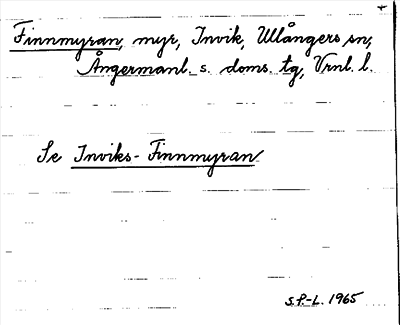 +
Finnmyran, myr, Invik, Ullångers sn,
Ångermanl. s. doms. tg, Vrnl. l.
Se Inviks-Finnmyran
S.P.-L. 1965